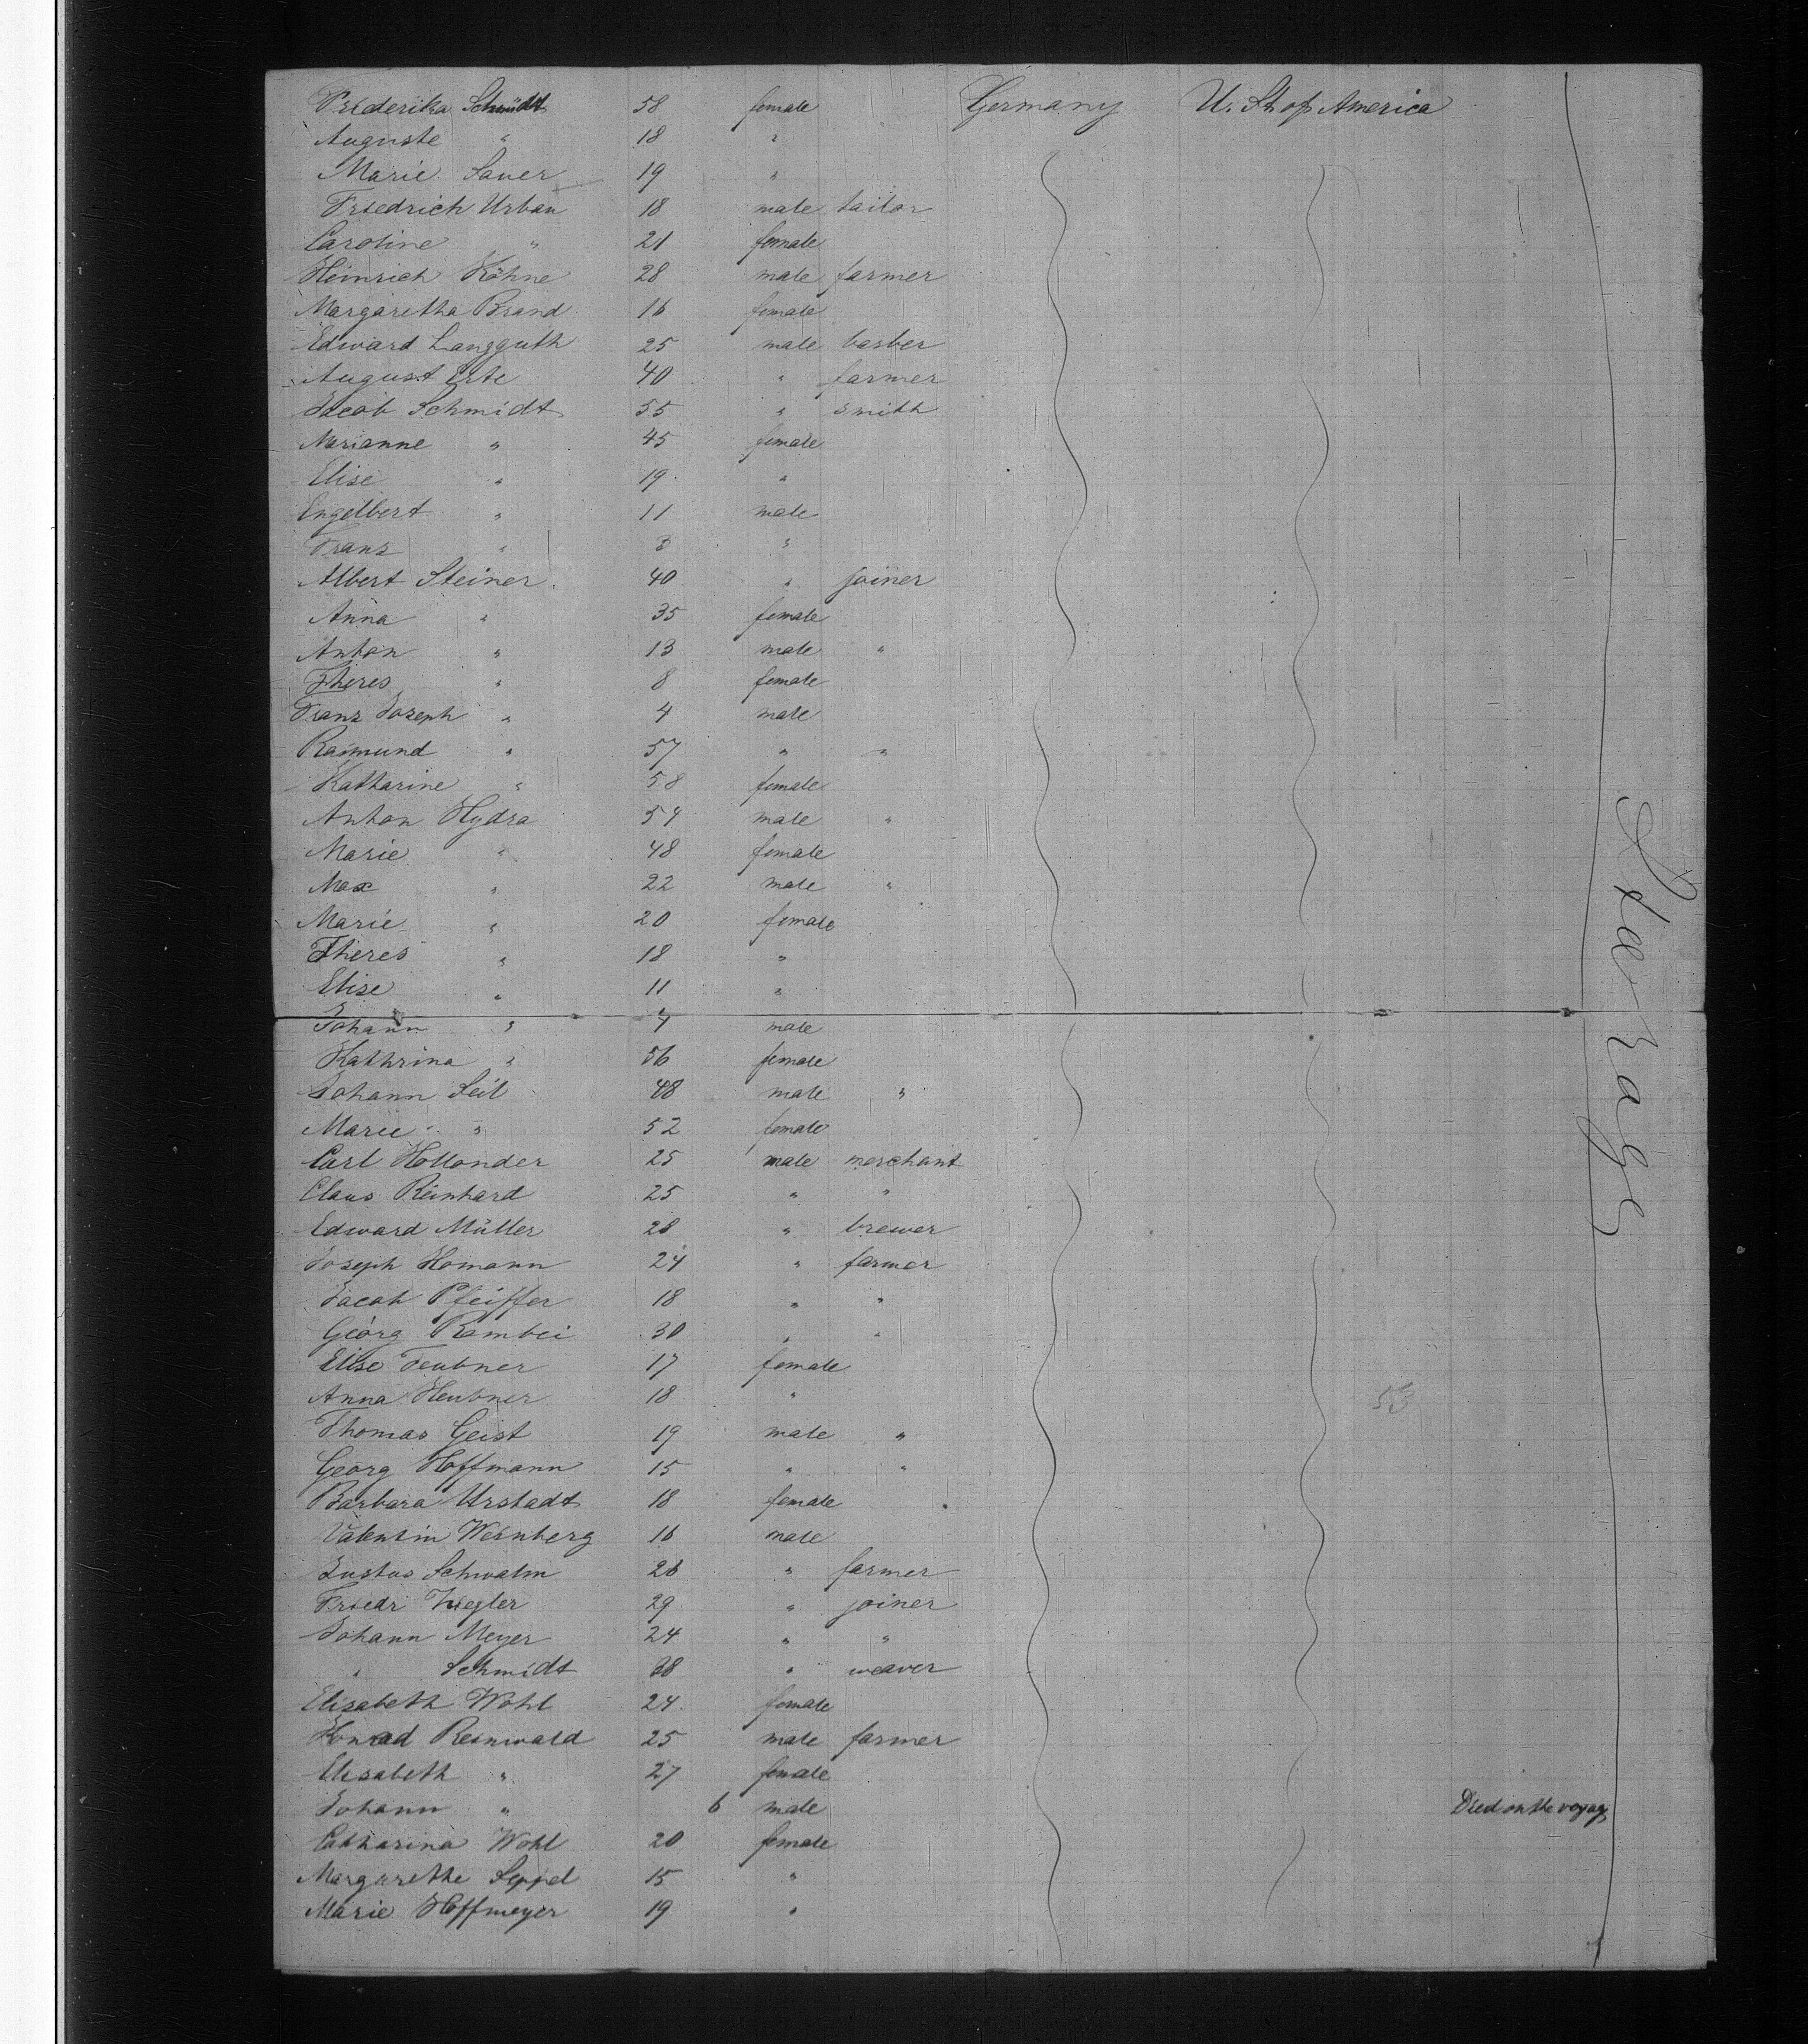 Friderika Schmidt 58 female Germany U. St. of America
Auguste " 18 "
Marie Sauer 19 "
Friedrich Urban 18 male tailor
Caroline " 21 female
Heinrich Köhne 28 male farmer
Margaretha Brand 16 female
Edward Langguth 25 male barber
August Erbe 40 " farmer
Jacob Schmidt 55 " smith
Marianne " 45 female
Elise " 19 "
Engelbert " 11 male
Franz " 3 "
Albert Steiner 40 " joiner
Anna " 35 female
Anton " 13 male "
Theres " 8 female
Franz Joseph " 4 male
Raimund " 57 " "
Katharine " 58 female
Anton Hydra 54 male "
Marie " 48 female
Max " 22 male "
Marie " 20 female
Theres " 18 "
Elise " 11 "
Johann " 7 male
Kathrina " 56 female
Johann Seit 48 male "
Marie " 52 female
Carl Hollander 25 male merchant
Claus Reinhard 25 " "
Edward Müller 28 " brewer
Joseph Homann 24 " farmer
Jacob Pfeiffer 18 " "
Georg Rambei 30 " "
Elise Teubner 17 female
Anna Heubner 18 "
53
Thomas Geist 19 male "
Georg Hoffmann 15 " "
Barbara Urstadt 18 female
Valentin Weinberg 16 male
Justus Schwalm 26 " farmer
Friedr Ziegler 29 " joiner
Johann Meyer 24 " "
" Schmidt 28 " weaver
Elisabeth Wohl 24 female
Konrad Reinwald 25 male farmer
Elisabeth " 27 female
Johann " 6 male Died on the voyag
Catharina Wohl 20 female
Margarethe Seppel 15 "
Marie Hoffmeyer 19 "
Steerage